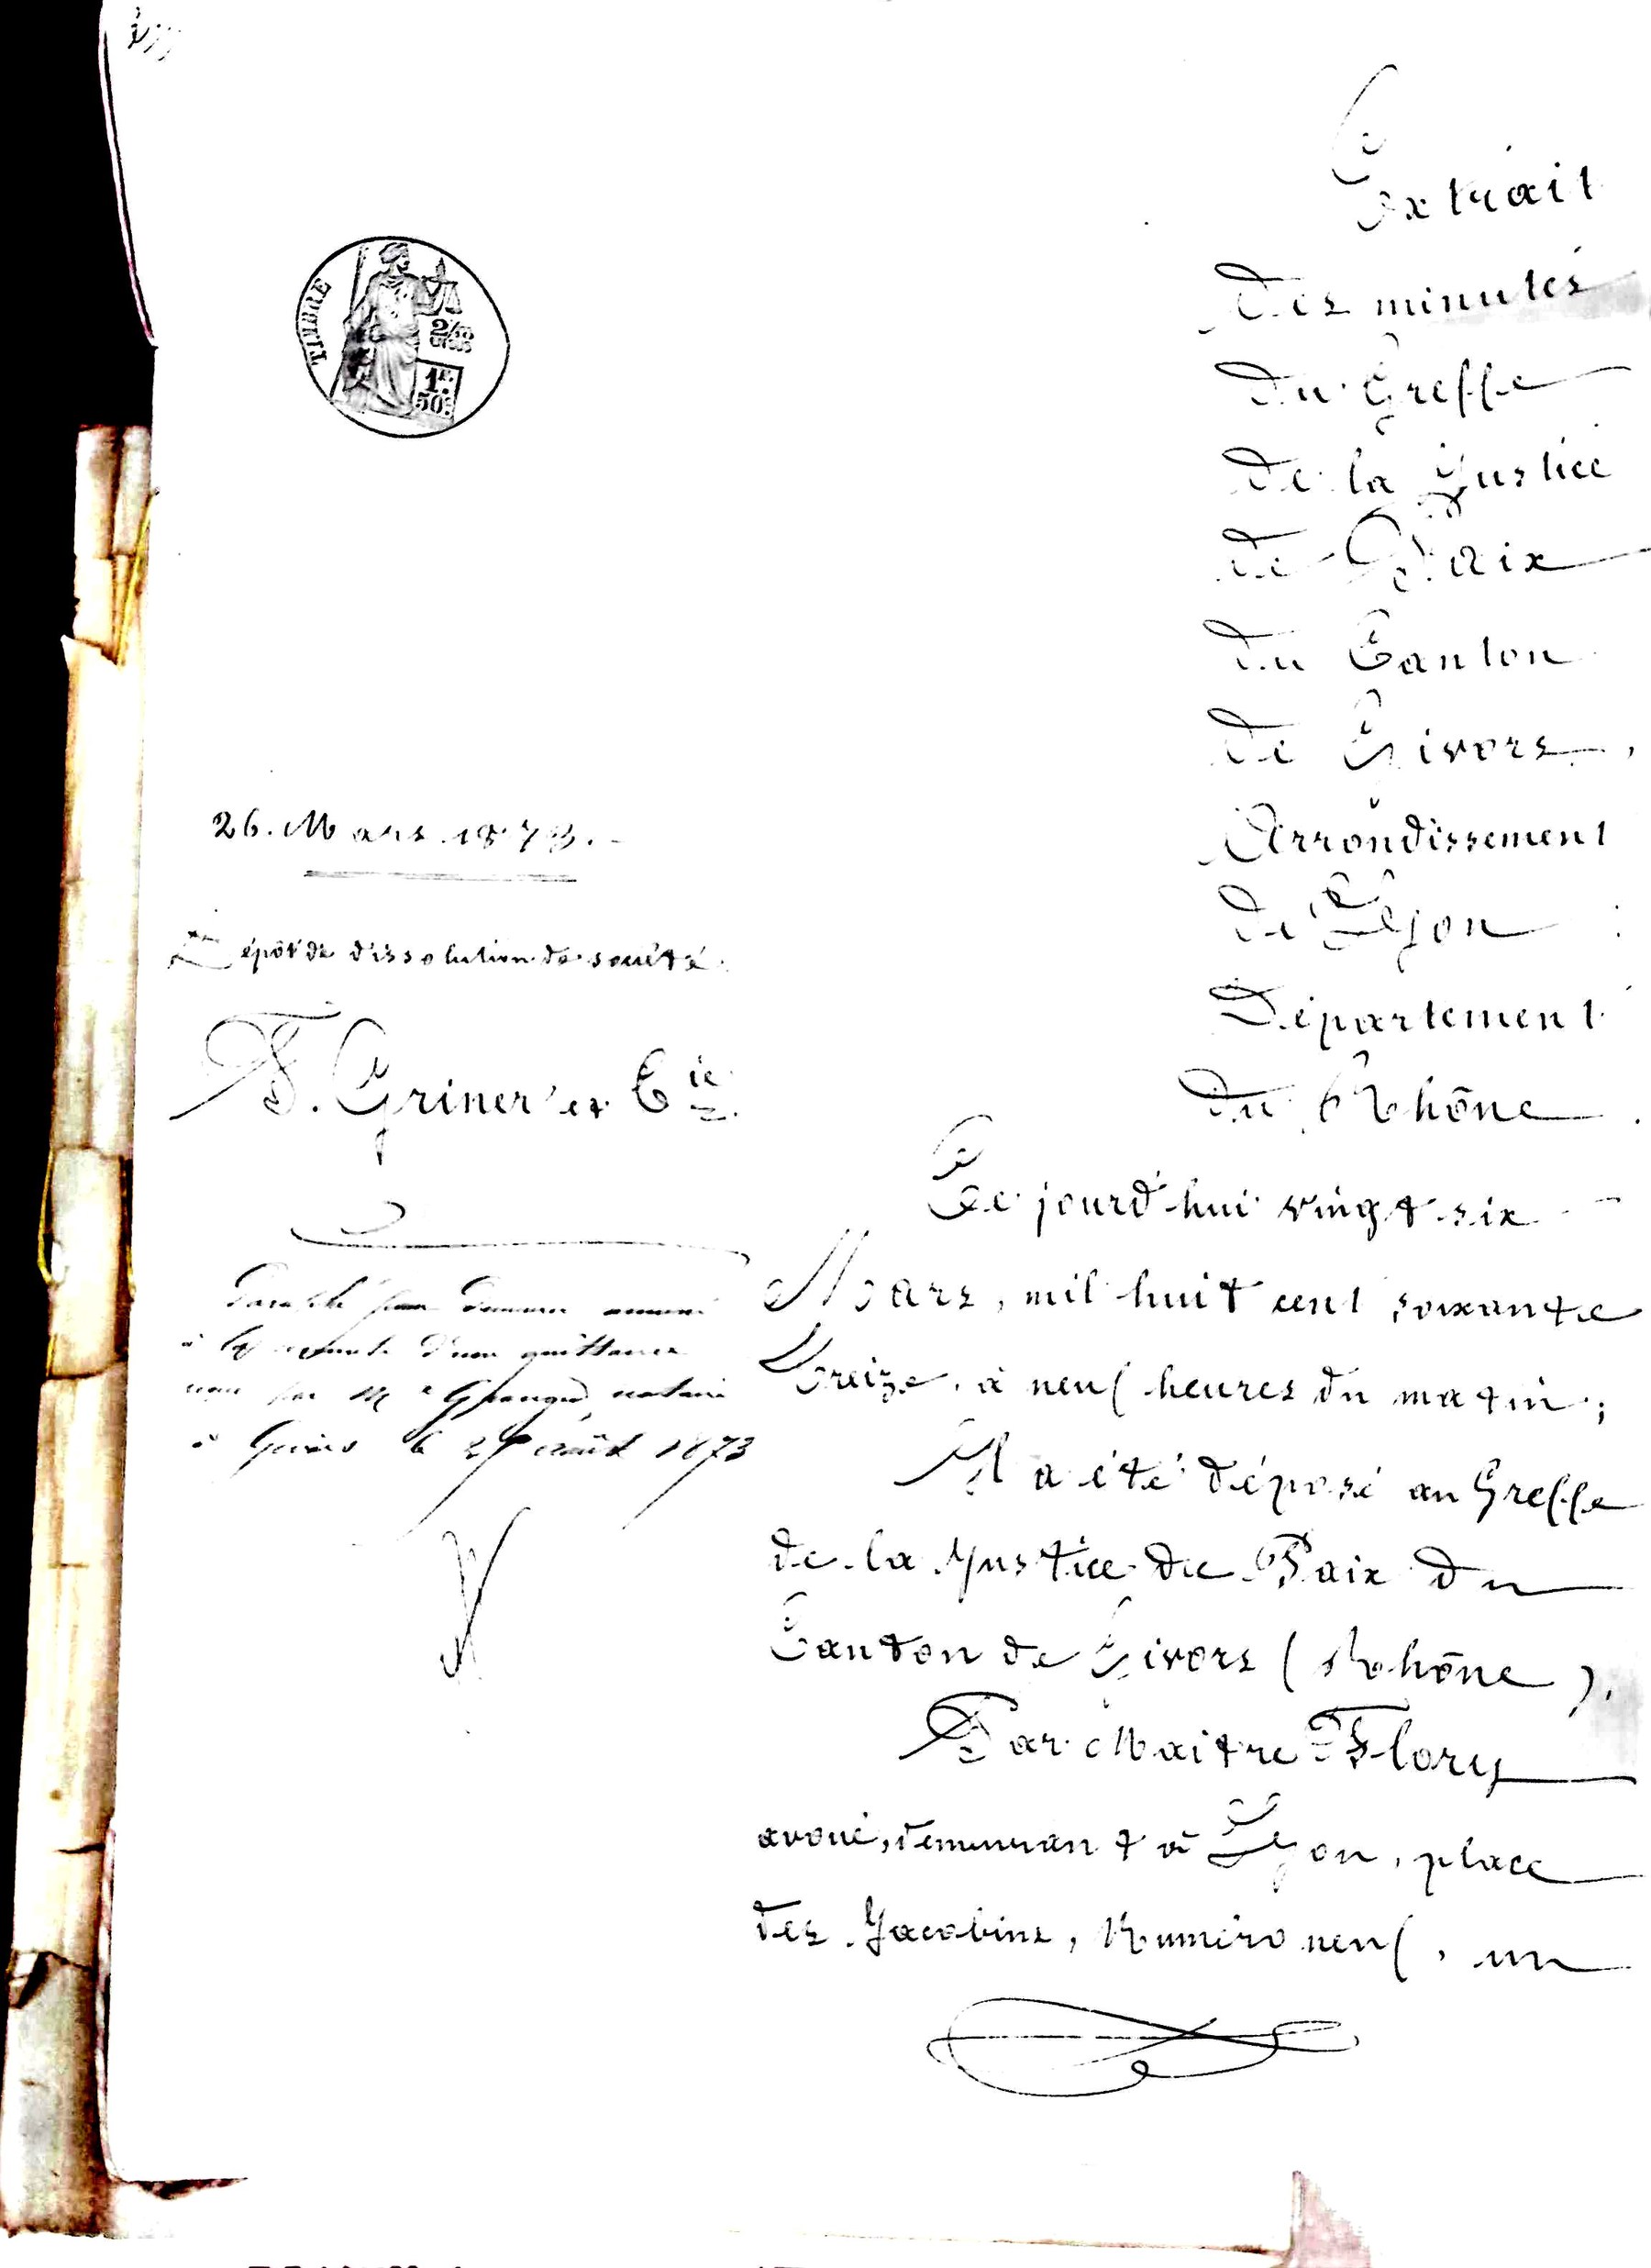 TIMBRE
2/10
EN SUS
1F.
50C.
Extrait
des minutes
du Greffe
de la Justice
de Paix
du Canton
de Givors,
Arrondissement
de Lyon
Département
du Rhône.
26. Mars 1873.
Dépôt de dissolution de société
F. Griner et Cie
Paraphé pour demeurer annexé
à la minute d'une quittance
reçue par Me notaire
à Givors le août 1873
Ce jourd'hui vingt six
Mars, mil huit cent soixante
treize, à neuf heures du matin;
Il a été déposé au Greffe
de la Justice de Paix du
Canton de Givors (Rhône).
Par Maitre Flory
avoué, demeurant à Lyon, place
des Jacobins, Numéro neuf, un